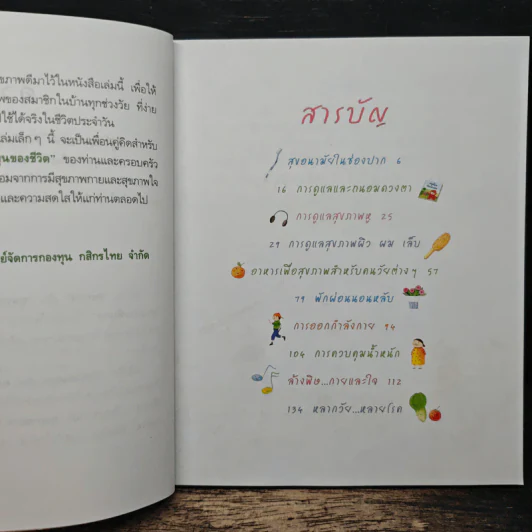 ขภาพดีมาไว้ในหนังสือเล่มนี้ เพื่อให้
พของสมาชิกในบ้านทุกช่วงวัย ที่ง่าย
ใช้ได้จริงในชีวิตประจำวัน
ล่มเล็กๆ นี้ จะเป็นเพื่อนคู่คิดสำหรับ
ุนของชีวิต" ของท่านและครอบครัว
อมจากการมีสุขภาพกายและสุขภาพใจ
และความสดใสให้แก่ท่านตลอดไป
ย์จัดการกองทุน กสิกรไทย จำกัด
สารบัญ
สุขอนามัยในช่องปาก 6
16 การดูแลและถนอมดวงตา
การดูแลสุขภาพหู 25
29 การดูแลสุขภาพผิว ผม เล็บ
อาหารเพื่อสุขภาพสำหรับคนวัยต่างๆ 57
79 พักผ่อนนอนหลับ
การออกกำลังกาย 94
104 การควบคุมน้ำหนัก
ล้างพิษ...กายและใจ 112
134 หลากวัย...หลายโรค